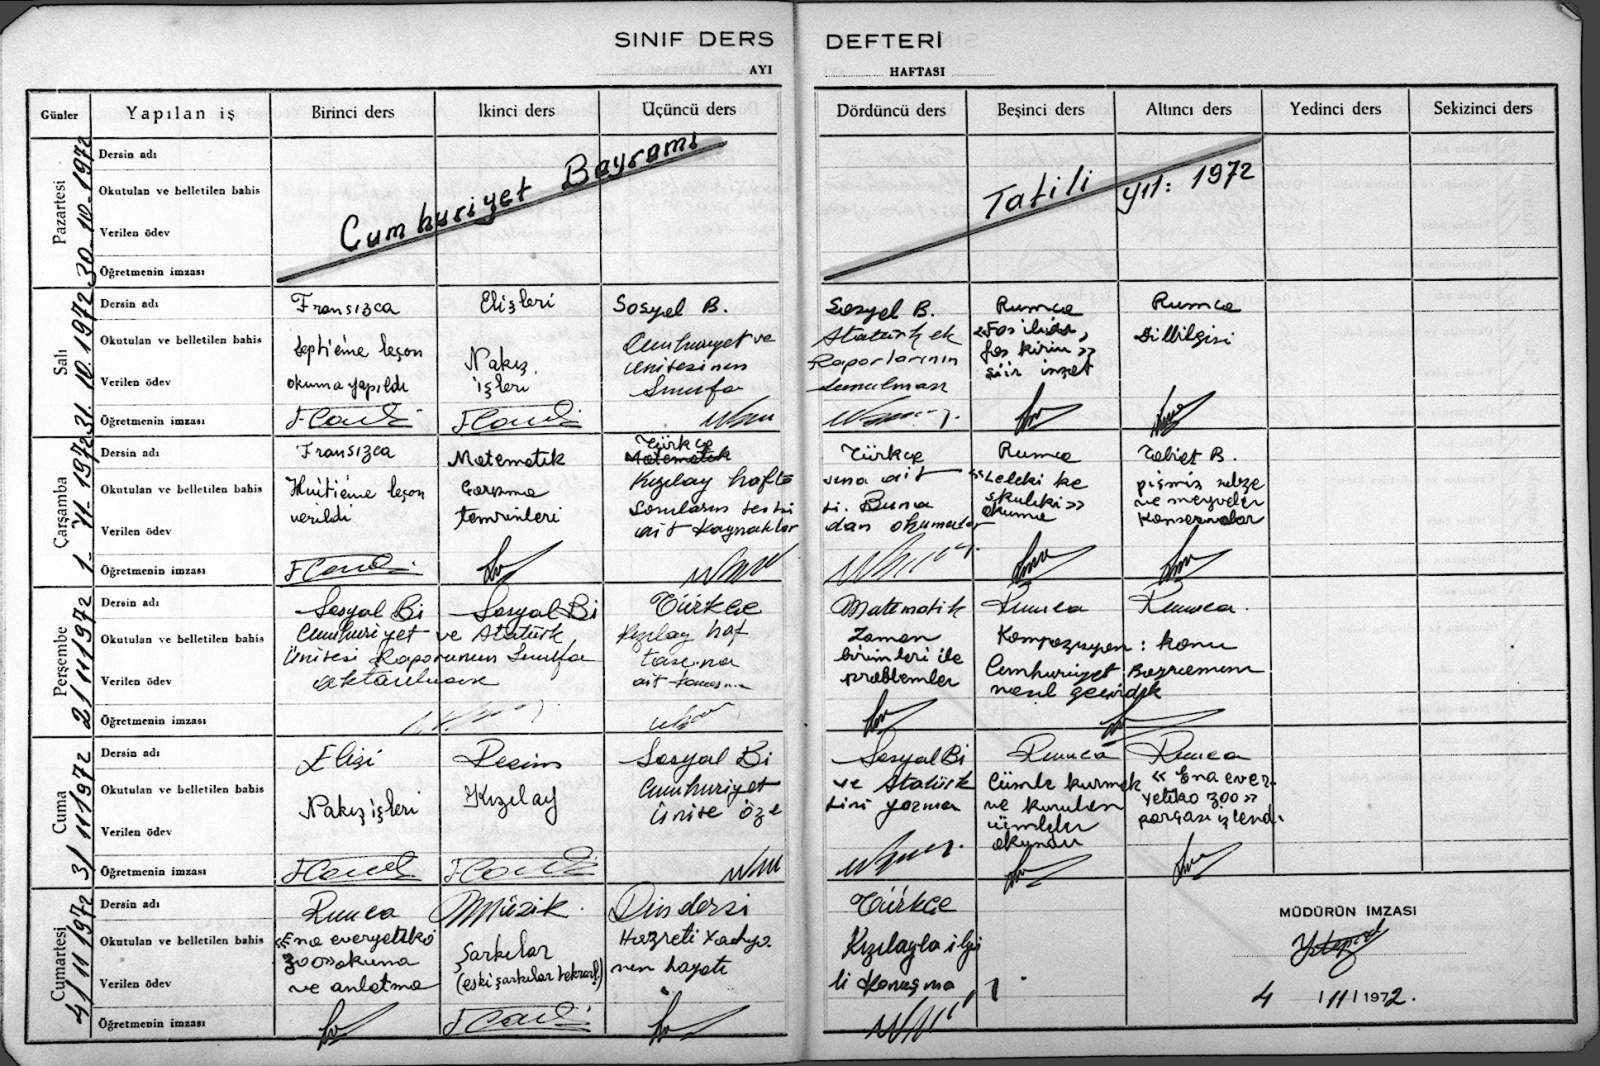 SINIF DERS DEFTERİ
AYI HAFTASI
Günler Yapılan iş Birinci ders İkinci ders Üçüncü ders Dördüncü ders Beşinci ders Altıncı ders Yedinci ders Sekizinci ders
Pazartesi 30-10-1972
Dersin adı
Okutulan ve belletilen bahis
Verilen ödev
Öğretmenin imzası
Cumhuriyet Bayramı
Tatili yıl: 1972
Salı 31.10.1972
Dersin adı
Okutulan ve belletilen bahis
Verilen ödev
Öğretmenin imzası
Fransızca
Septième leçon
okuma yapıldı
Elişleri
Nakış
işleri
Sosyal B.
Cumhuriyet ve
ünitesinin
Sınıfa
Sosyal B.
Atatürk ek
Raporlarının
sunulması
Rumca
şiir
Rumca
Dilbilgisi
Çarşamba 1-11-1972
Dersin adı
Okutulan ve belletilen bahis
Verilen ödev
Öğretmenin imzası
Fransızca
Huitième leçon
verildi
Matematik
Çarpma
temrinleri
Türkçe
Matematik
Kızılay hafta
ait kaynaklar
Türkçe
sına ait
Buna
dan okumalar
Rumca
okuma
Tabiat B.
pişmiş sebze
ve meyveler
konservalar
Perşembe 2/11/1972
Dersin adı
Okutulan ve belletilen bahis
Verilen ödev
Öğretmenin imzası
Sosyal Bi Sosyal Bi
Cumhuriyet ve Atatürk
Ünitesi Raporunun Sınıfa
aktarılması
Türkçe
Kızılay haf
tasına
ait
Matematik
Zaman
birimleri ile
problemler
Rumca Rumca.
Kompozisyon: konu
Cumhuriyet Bayramını
nasıl geçirdik
Cuma 3/11/1972
Dersin adı
Okutulan ve belletilen bahis
Verilen ödev
Öğretmenin imzası
Elişi
Nakış işleri
Resim
Kızılay
Sosyal Bi
Cumhuriyet
ünite öze
Sosyal Bi
ve Atatürk
tini yazma
Rumca
Cümle kurmak
ve kurulan
cümleler
okundu
Rumca
« Ena ever-
yetiko zoo »
parçası işlendi
Cumartesi 4/11/1972
Dersin adı
Okutulan ve belletilen bahis
Verilen ödev
Öğretmenin imzası
Rumca
«Ena everyetiko
zoo» okuma
ve anlatma
Müzik.
Şarkılar
(eski şarkılar tekrarı)
Din dersi
Hazreti
nin hayatı
Türkçe
Kızılayla ilgi
li konuşma
MÜDÜRÜN İMZASI
4 /11/1972.